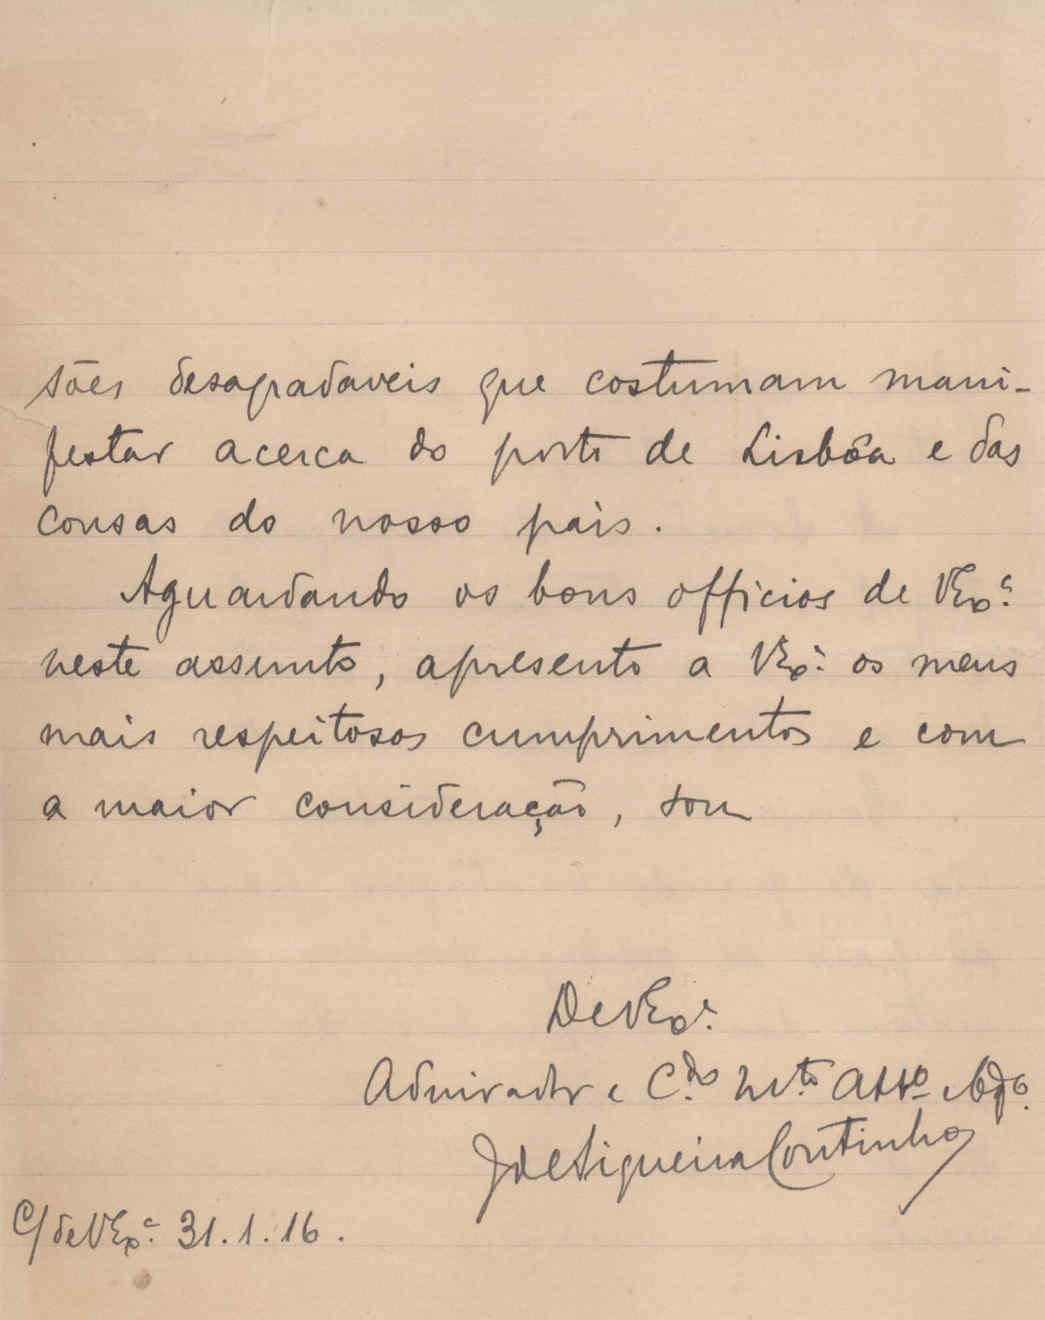 sões desagradaveis que costumam mani-
festar acerca do porto de Lisbôa e das
cousas do nosso pais.
Aguardando os bons officios de VExª.
neste assunto, apresento a VExª. os meus
mais respeitosos cumprimentos e com
a maior consideração, sou
De VExª.
Admirador e C.do M.to Att.o e Obg.o
J de Siqueira Coutinho
C/ de VExª. 31.1.16.